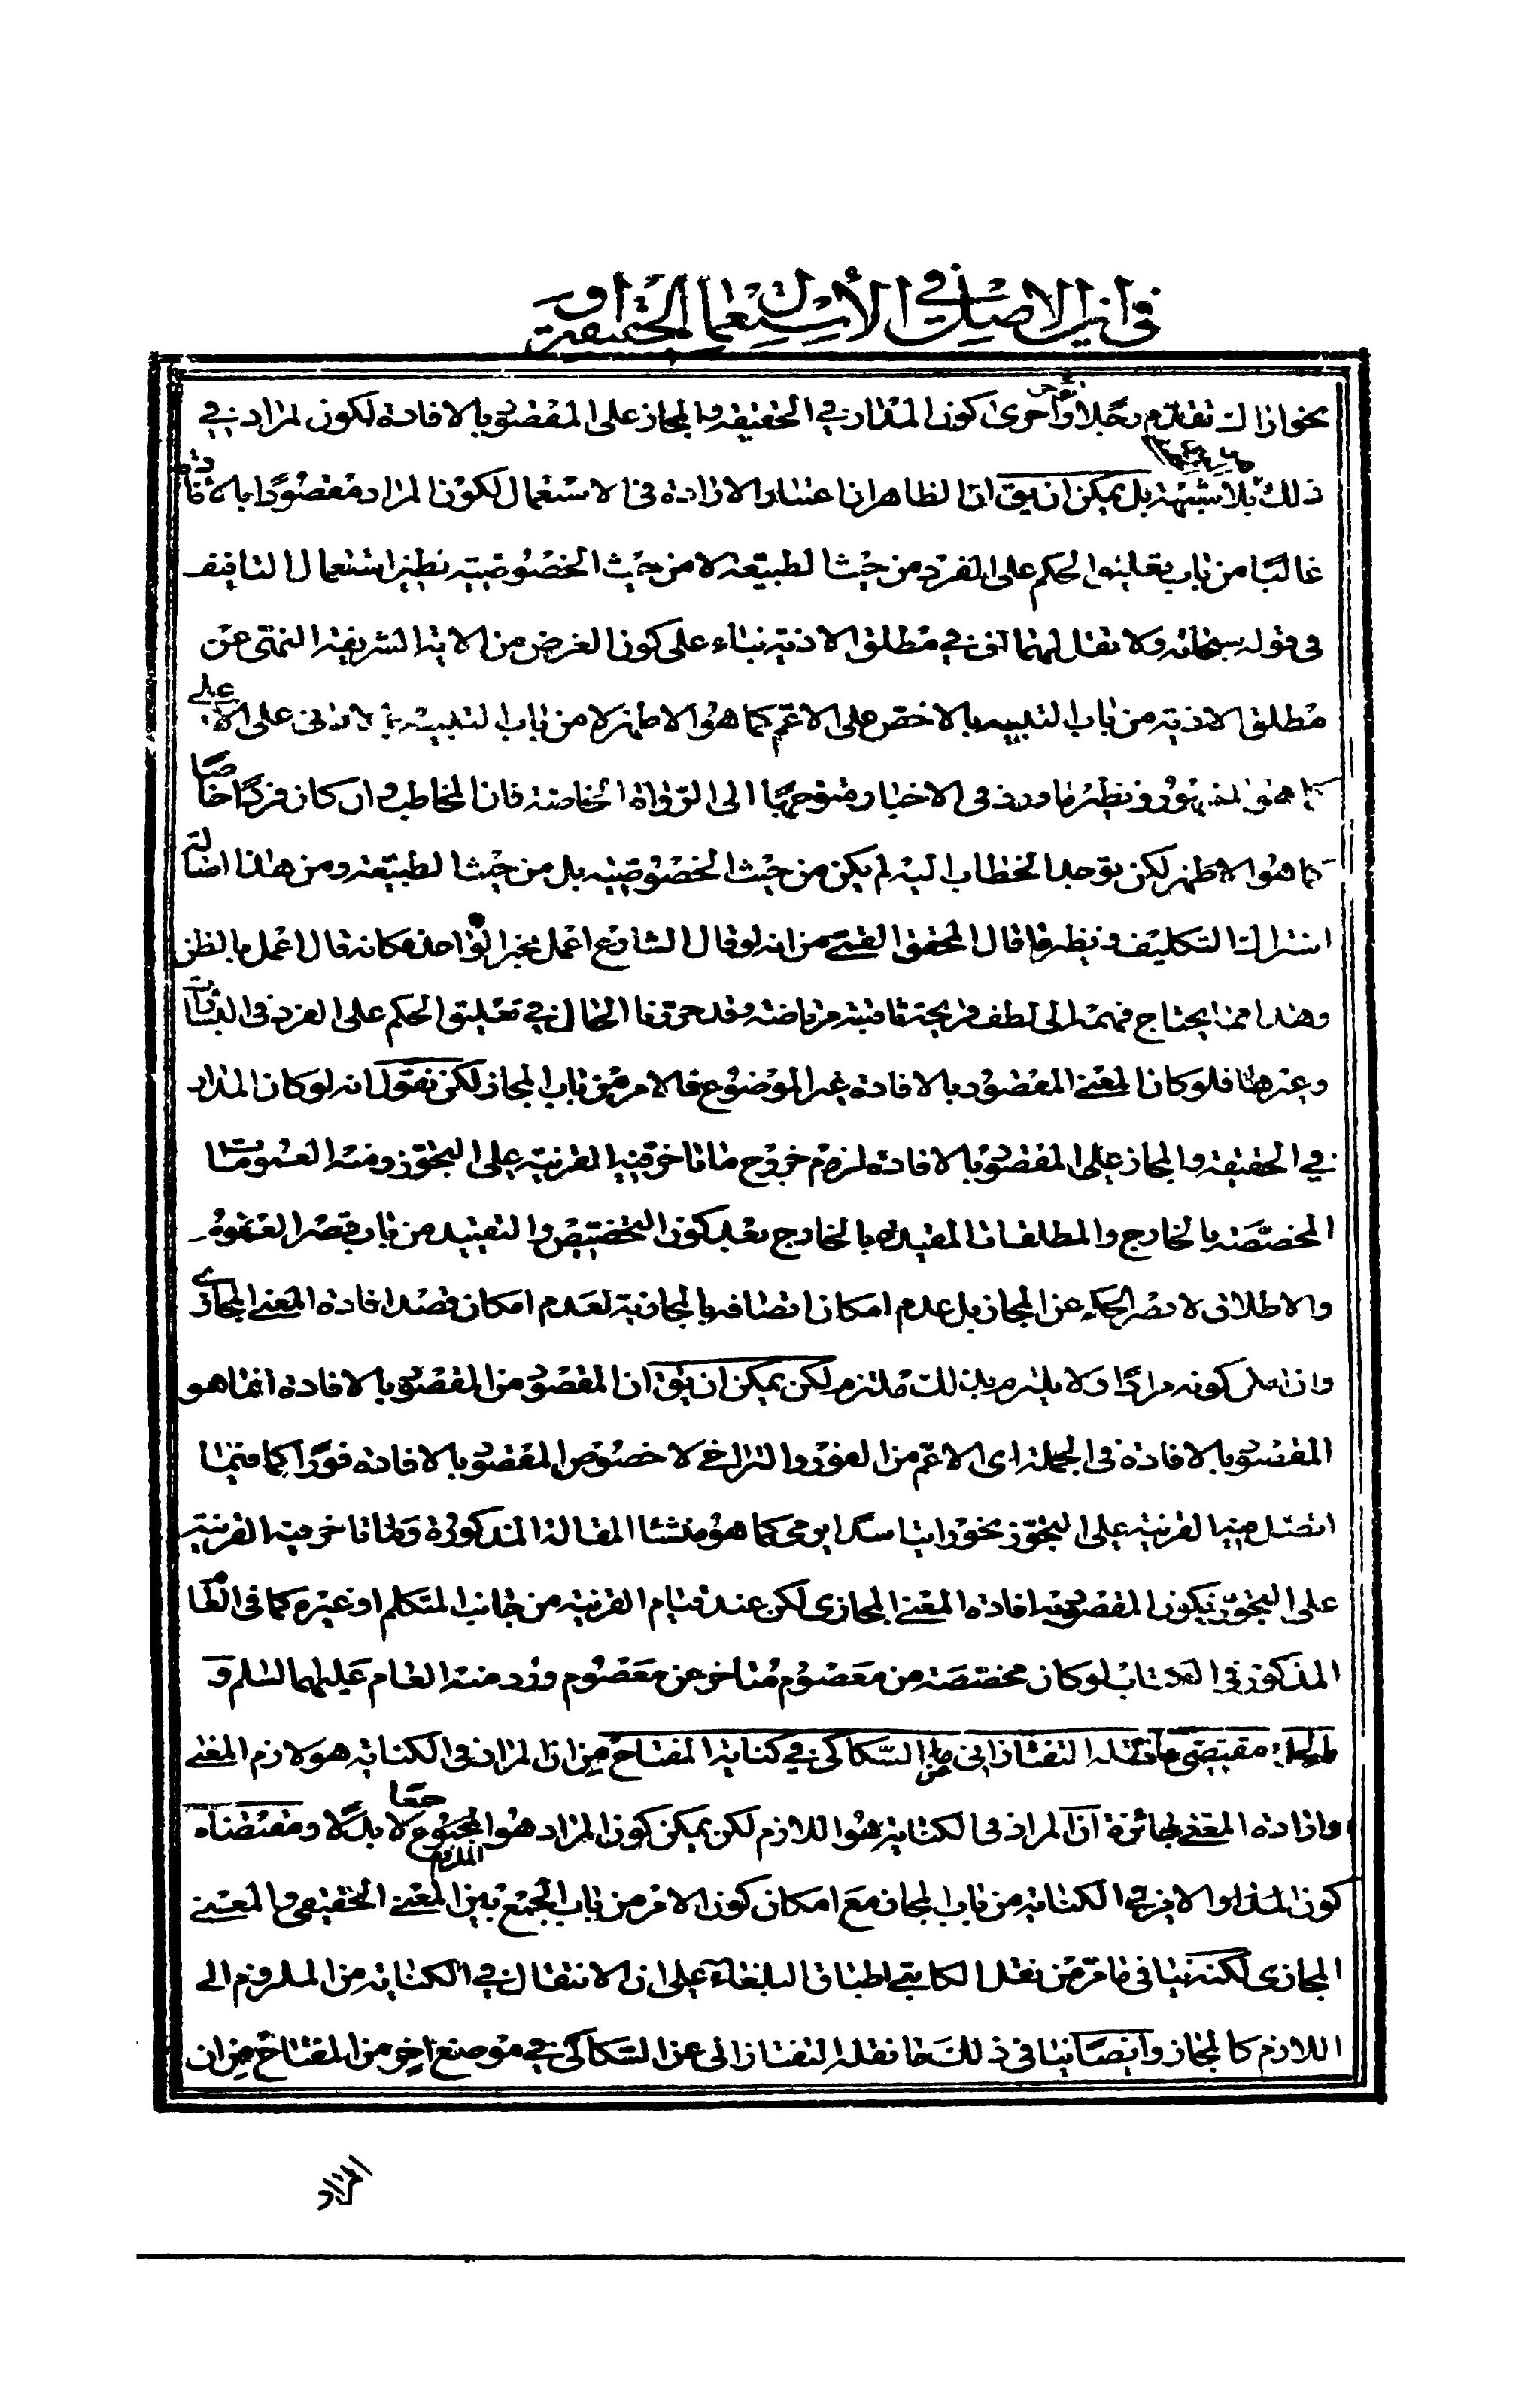 في ان الاصل في الاستعمال الحقيقة او
ذلك تقدم مجملا واخرى كون المدار في الحقيقة والمجاز على المقصود بالافادة لكون المراد في
ذلك بلا شبهة بل يمكن ان يق ان الظاهر ان اعتبار الارادة في الاستعمال لكون المراد مقصودا بالافادة
غالبا من باب تعليق الحكم على الفرد من حيث الطبيعة لا من حيث الخصوصية نظير استعمال التافيف
في قوله سبحانه ولا تقل لهما اف في مطلق الاذية بناء على كون الغرض من الاية الشريفة النهى عن
مطلق الاذية من باب التنبيه بالاخص على الاعم كما هو الاظهر لا من باب التنبيه بالادنى على الاعلى
كما هو المشهور ونظير ما ورد في الاخبار متوجها الى الرواة الخاصة فان المخاطب وان كان فردا خاصا
كما هو الاظهر لكن توجه الخطاب اليه لم يكن من حيث الخصوصية بل من حيث الطبيعة ومن هذا اصالة
اشتراك التكليف ونظير ما قال المحقق القمى من انه لو قال الشارع اعمل بخبر الواحد فكانه قال اعمل بالظن
وهذا مما يحتاج فهمه الى لطف قريحة ثاقبة مرتاضة وقد حررنا الحال في تعليق الحكم على الفرد في البشارات
وغيرها فلو كان المعنى المقصود بالافادة غير الموضوع له فالامر من باب المجاز لكن نقول انه لو كان المدار
في الحقيقة والمجاز على المقصود بالافادة لزم خروج ما تاخر فيه القرينة على التجوز ومنه العمومات
المخصصة بالخارج والمطلقات المقيدة بالخارج بعد كون التخصيص والتقييد من باب قصر العموم
والاطلاق لا قصر الحكم عن المجاز بل عدم امكان اتصافه بالمجازية لعدم امكان قصد افادة المعنى المجازى
وان امكن كونه مرادا ولا يلتزم بذلك ملتزم لكن يمكن ان يق ان المقصود من المقصود بالافادة انما هو
المقصود بالافادة في الجملة اى الاعم من الفور والتراخى لا خصوص المقصود بالافادة فورا كما فيما
اتصل فيه القرينة على التجوز نحو رايت اسدا يرمى كما هو منشا المقالة المذكورة وما تاخر فيه القرينة
على التجوز يكون المقصود به افادة المعنى المجازى لكن عند قيام القرينة من جانب المتكلم او غيره كما في العام
المذكور في الكتاب لو كان مخصصه من معصوم متاخر عن معصوم ورد منه العام عليهما السلام و
بالجملة مقتضى ما نقله التفتازانى عن السكاكى في كناية المفتاح من ان المراد في الكناية هو لازم المعنى
وارادة المعنى جائزة ان المراد في الكناية هو اللازم لكن يمكن كون المراد هو المجموع جمعا لا بدلا ومقتضاه
كون المدار والامر في الكناية من باب المجاز مع امكان كون الامر من باب الجمع بين المعنى الحقيقى والمعنى
المجازى لكنه ينافى ما مر من نقل الكل اطباق البلغاء على ان الانتقال في الكناية من الملزوم الى
اللازم كالمجاز وايضا ينافى ذلك ما نقله التفتازانى عن السكاكى في موضع اخر من المفتاح من ان
المراد